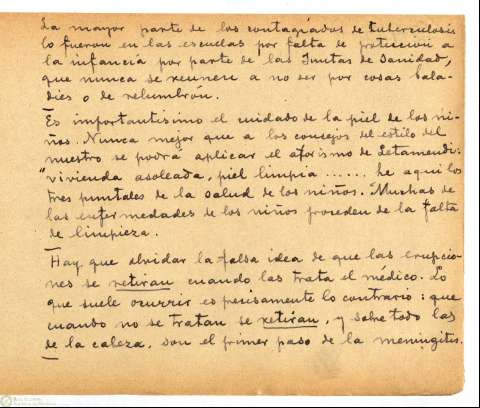 La mayor parte de los contagiados de tuberculosis
lo fueron en las escuelas por falta de protección a
la infancia por parte de las Juntas de Sanidad,
que nunca se reunen a no ser por cosas bala-
dies o de relumbrón.
Es importantísimo el cuidado de la piel de los ni-
ños. Nunca mejor que a los consejos del estilo del
nuestro se podrá aplicar el aforismo de Letamendi:
"vivienda asoleada, piel limpia ...... he aqui los
tres puntales de la salud de los niños. Muchas de
las enfermedades de los niños proceden de la falta
de limpieza.
Hay que olvidar la falsa idea de que las erupcio-
nes se retiran cuando las trata el médico. Lo
que suele ocurrir es presisamente lo contrario: que
cuando no se tratan se retiran, y sobre todo las
de la cabeza, son el primer paso de la meningitis.